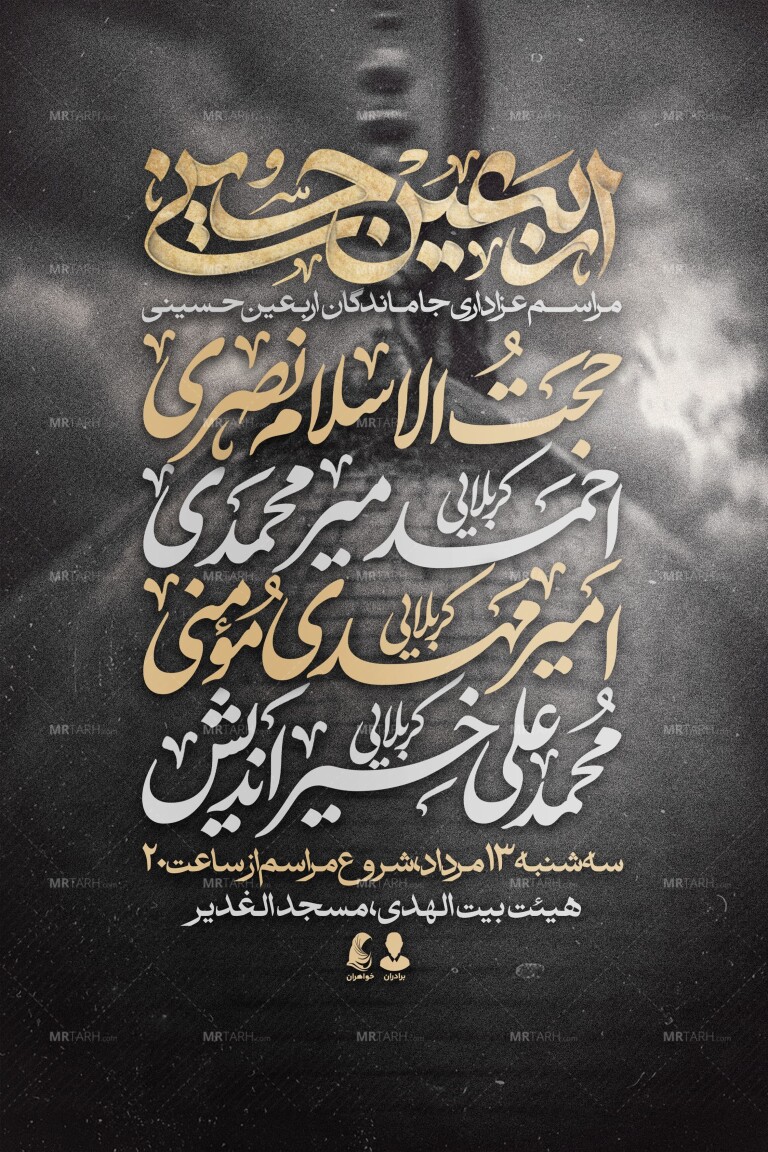 اربعین حسینی
مراسم عزاداری جاماندگان اربعین حسینی
حجتُ الاسلام نصری
کربلایی احمد میرمحمدی
کربلایی امیرمهدی مؤمنی
کربلایی محمدعلی خیراندیش
سه‌شنبه ۱۳ مرداد، شروع مراسم از ساعت ۲۰
هیئت بیت الهدی، مسجد الغدیر
برادران خواهران
MRTARH.com